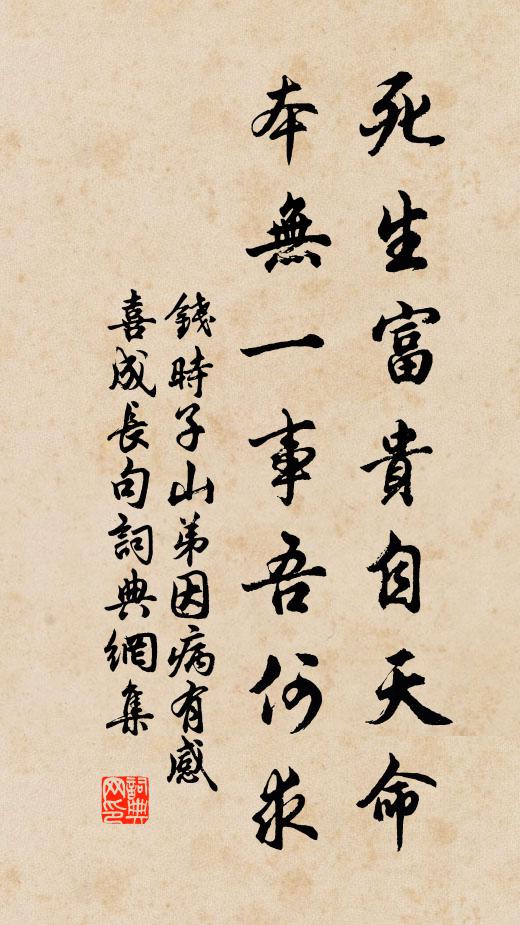 死生富貴自天命
本無一事吾何求
錢時子山弟因病有感
喜成長句詞典網集
詞典
网印